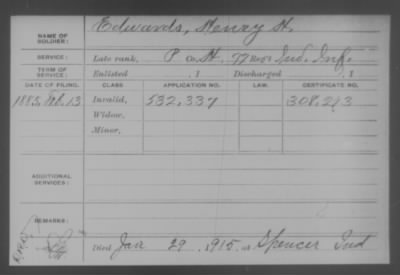 NAME OF SOLDIER: Edwards, Henry H.
SERVICE: Late rank, P Co. H, 77 Reg't Ind. Inf.
TERM OF SERVICE: Enlisted , 1 Discharged , 1
DATE OF FILING. CLASS. APPLICATION NO. LAW. CERTIFICATE NO.
1883, Feb. 13 Invalid, 532,337 308,293
Widow,
Minor,
ADDITIONAL SERVICES:
REMARKS:
Died Jan 29, 1915, at Spencer Ind